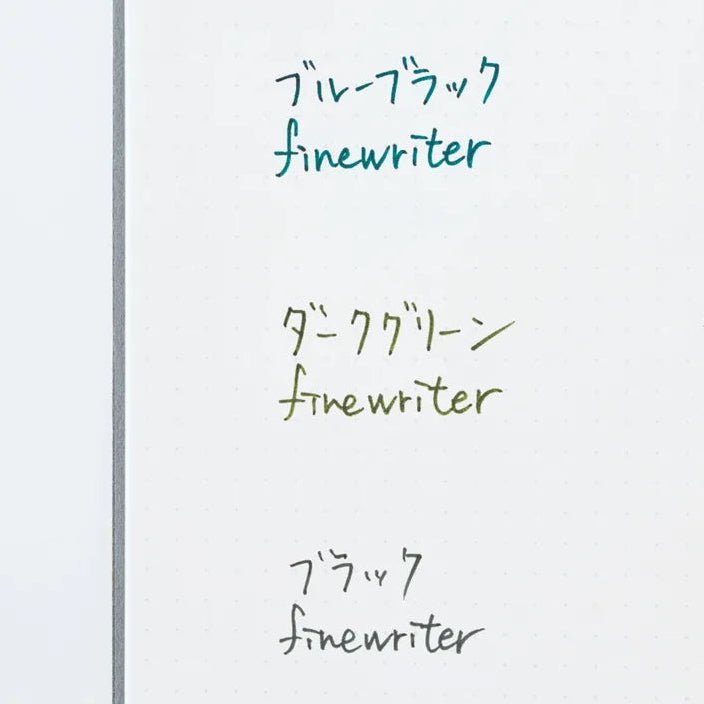 ブルーブラック
finewriter
ダークグリーン
finewriter
ブラック
finewriter